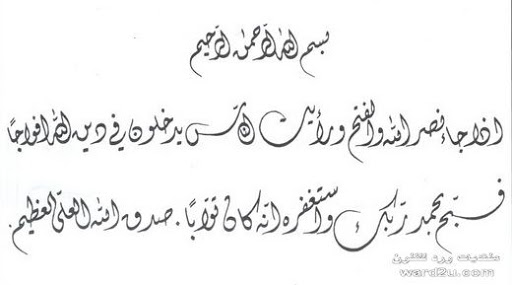 بسم الله الرحمن الرحيم
اذا جاء نصر الله والفتح ورأيت الناس يدخلون في دين الله افواجًا
فسبّح بحمد ربّك واستغفره انّه كان توّابًا . صدق الله العليّ العظيم .
منتديات ورد للفنون
ward2u.com